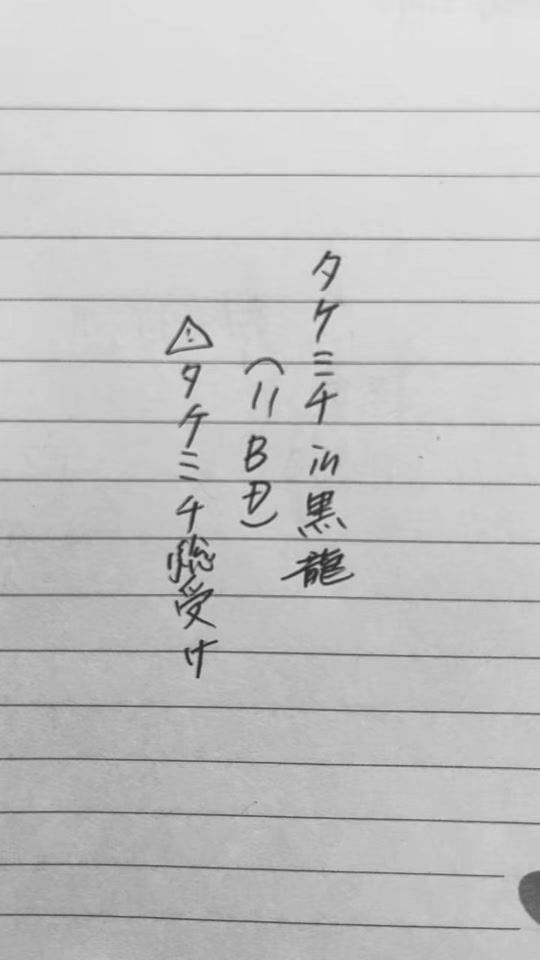 タケミチin黒龍
(11BD)
⚠タケミチ総受け